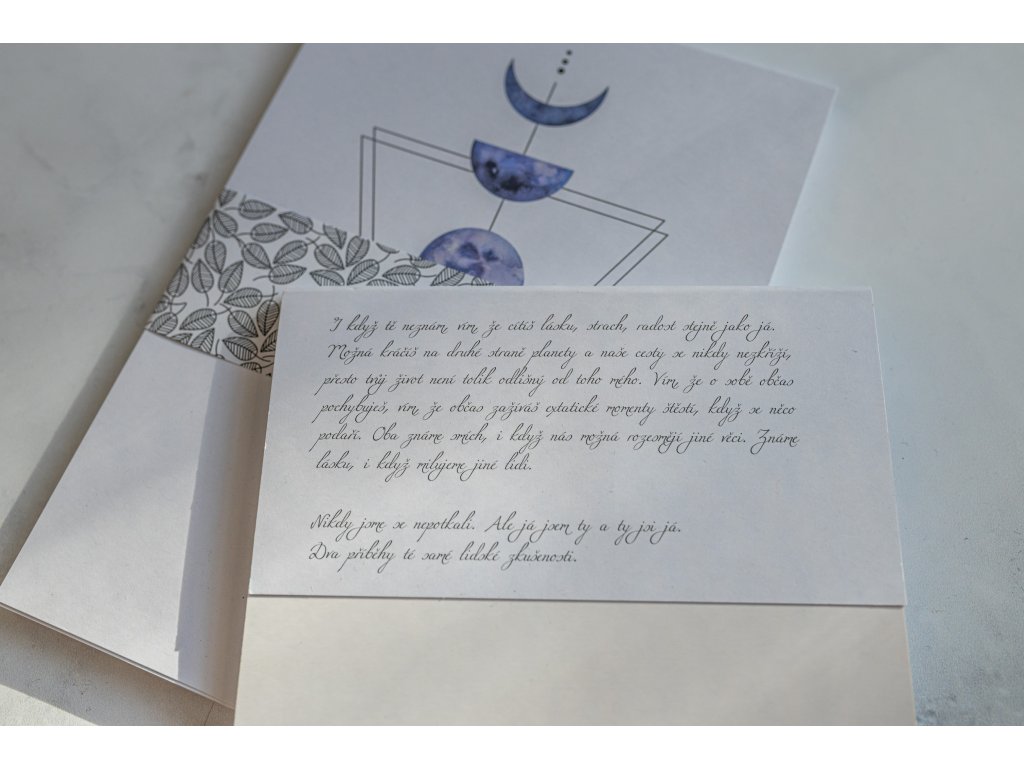 I když tě neznám, vím, že cítíš lásku, strach, radost stejně jako já.
Možná kráčíš na druhé straně planety a naše cesty se nikdy nezkříží,
přesto tvůj život není tolik odlišný od toho mého. Vím, že o sobě občas
pochybuješ, vím, že občas zažíváš extatické momenty štěstí, když se něco
podaří. Oba známe smích, i když nás možná rozesmějí jiné věci. Známe
lásku, i když milujeme jiné lidi.
Nikdy jsme se nepotkali. Ale já jsem ty a ty jsi já.
Dva příběhy té samé lidské zkušenosti.